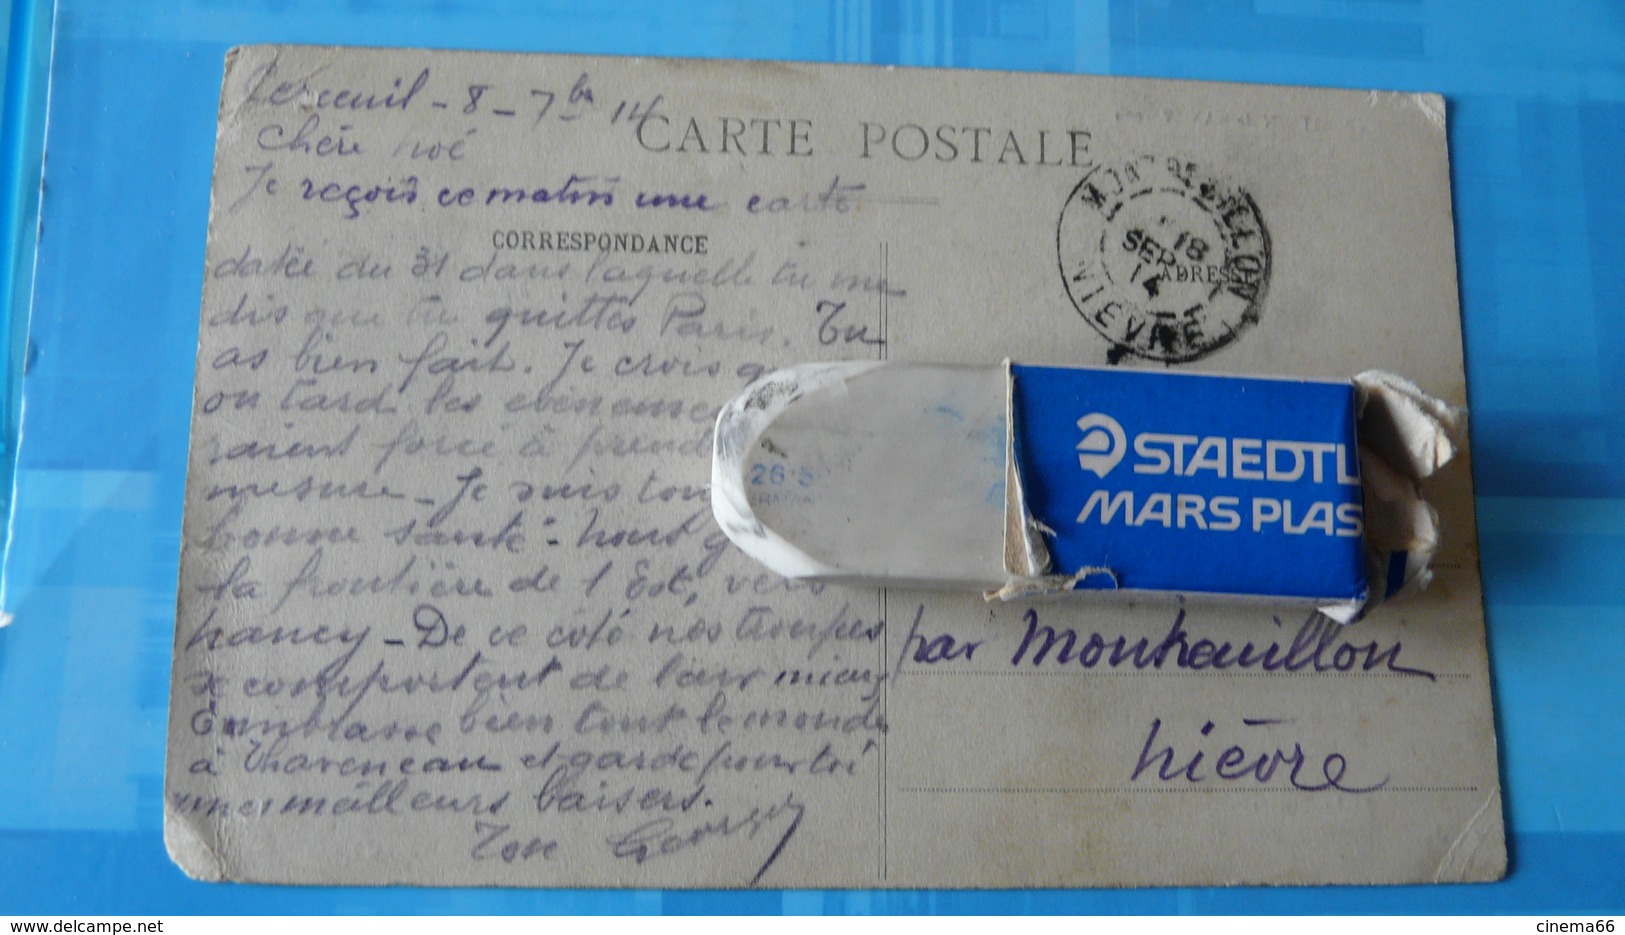 Lereuil - 8 - 7bre 14
CARTE POSTALE
Chère Noé
Je reçois ce matin une carte
CORRESPONDANCE
datée du 31 dans laquelle tu me
dis que tu quittes Paris. Tu
as bien fait. Je crois
ou tard les
raient forcé à
mesure - Je suis
bonne santé - nous
la frontière de l'Est, vers
Nancy - De ce côté nos troupes
se comportent de leur mieux
Embrasse bien tout le monde
à Thaveneau et garde pour toi
mes meilleurs baisers.
Ton Georges
18
SEPT
14
NIEVRE
ADRESSE
26-5
STAEDTL
MARS PLAS
par Montsauillon
Nièvre
cinema66